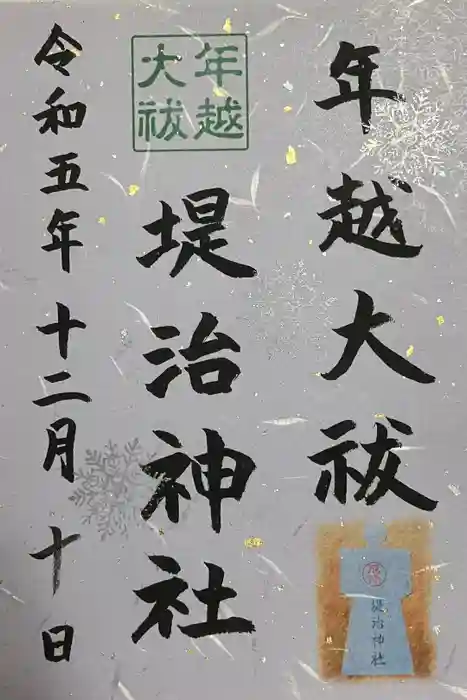 年越大祓
年越
大祓
堤治神社
堤治神社
令和五年十二月十日